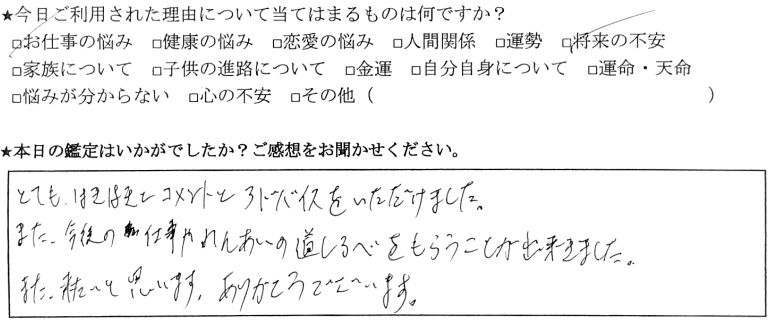 ★今日ご利用された理由について当てはまるものは何ですか？
□お仕事の悩み □健康の悩み □恋愛の悩み □人間関係 □運勢 □将来の不安
□家族について □子供の進路について □金運 □自分自身について □運命・天命
□悩みが分からない □心の不安 □その他（ ）
★本日の鑑定はいかがでしたか？ご感想をお聞かせください。
とても、はきはきとコメントとアドバイスをいただけました。
また、今後の仕事やれんあいの道しるべをもらうことが出来ました。
また、来たいと思います。ありがとうございます。